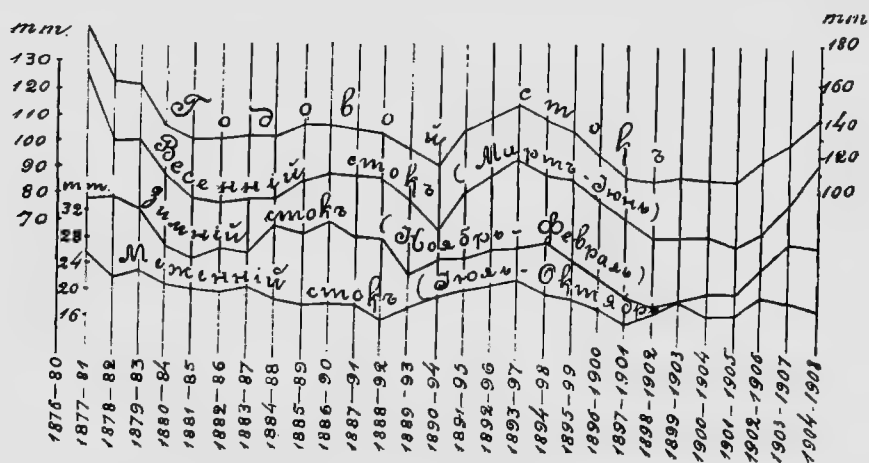 mm.
130
120
110
100
90
80
70
mm.
32
28
24
20
16
mm
180
160
140
120
100
Годовой стокъ
Весенній стокъ (Мартъ-Іюнь)
Зимній стокъ (Ноябрь-Февраль)
Меженній стокъ (Іюль-Октябрь)
1876-80
1877-81
1878-82
1879-83
1880-84
1881-85
1882-86
1883-87
1884-88
1885-89
1886-90
1887-91
1888-92
1889-93
1890-94
1891-95
1892-96
1893-97
1894-98
1895-99
1896-1900
1897-1901
1898-1902
1899-1903
1900-1904
1901-1905
1902-1906
1903-1907
1904-1908